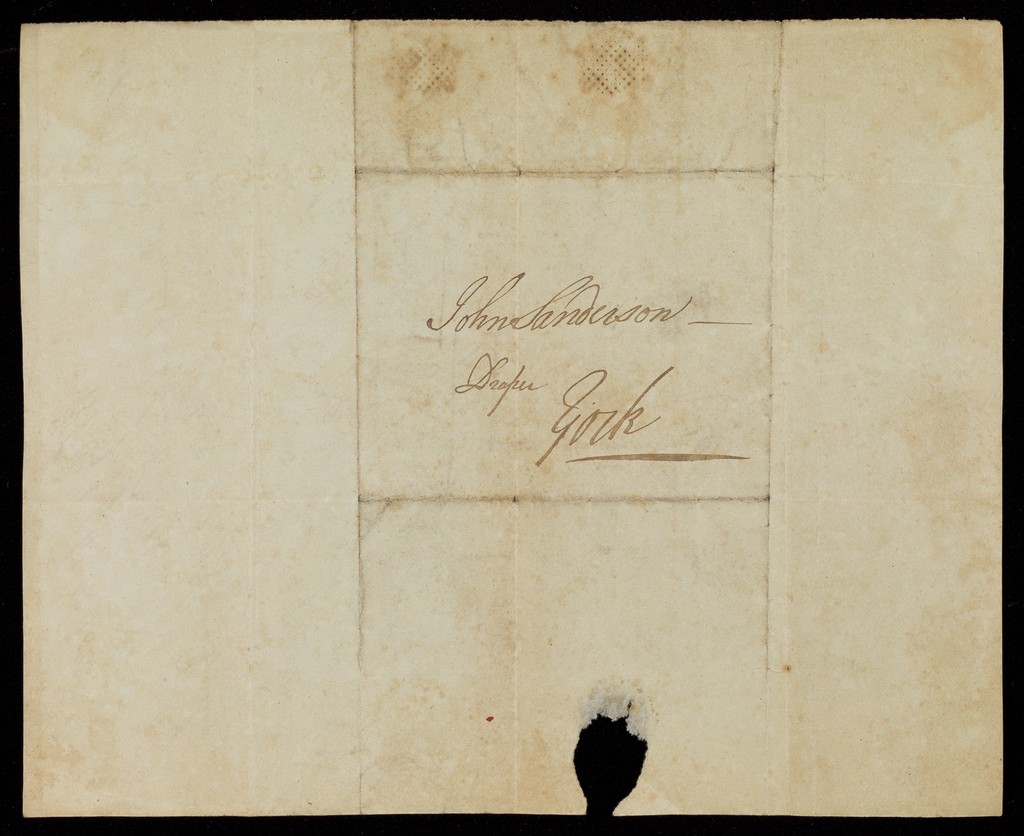 John Sanderson —
Draper
York